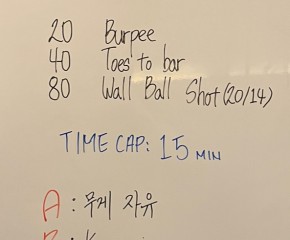 20 Burpee
40 Toes to bar
80 Wall Ball Shot (20/14)
TIME CAP: 15 MIN
A : 무게 자유